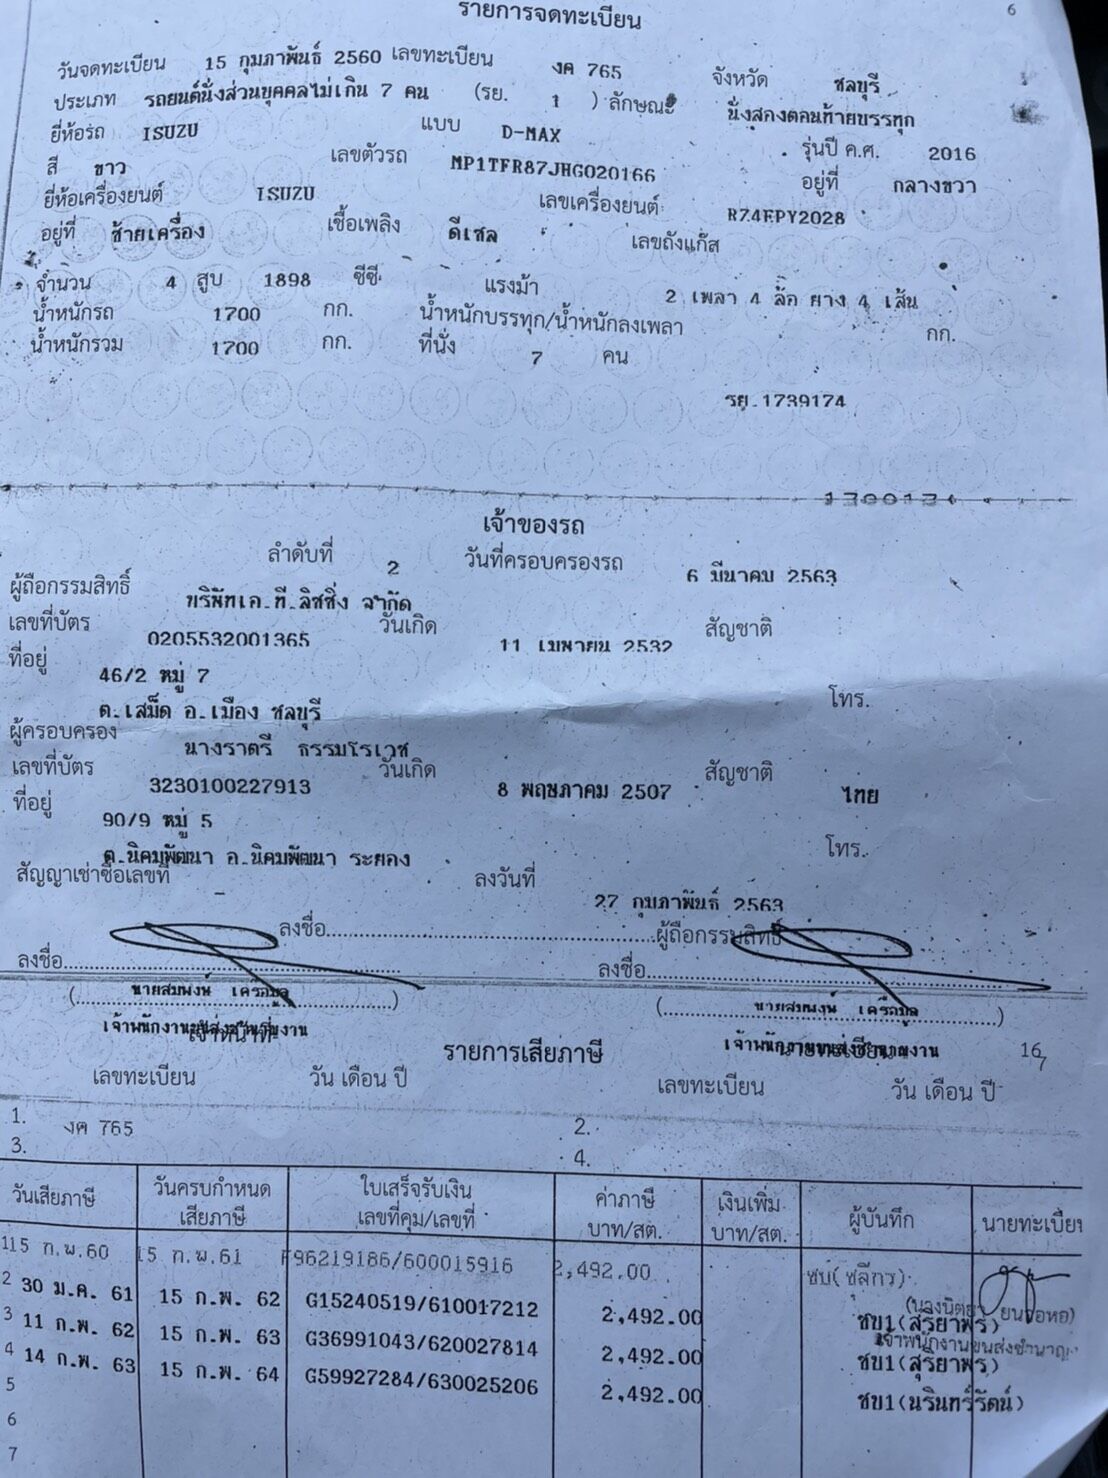 รายการจดทะเบียน 6
วันจดทะเบียน 15 กุมภาพันธ์ 2560 เลขทะเบียน งค 765 จังหวัด ชลบุรี
ประเภท รถยนต์นั่งส่วนบุคคลไม่เกิน 7 คน (รย. 1 ) ลักษณะ นั่งสองตอนท้ายบรรทุก
ยี่ห้อรถ ISUZU แบบ D-MAX รุ่นปี ค.ศ. 2016
สี ขาว เลขตัวรถ MP1TFR87JHG020166 อยู่ที่ กลางขวา
ยี่ห้อเครื่องยนต์ ISUZU เลขเครื่องยนต์ RZ4EPY2028
อยู่ที่ ซ้ายเครื่อง เชื้อเพลิง ดีเซล เลขถังแก๊ส
จำนวน 4 สูบ 1898 ซีซี แรงม้า 2 เพลา 4 ล้อ ยาง 4 เส้น
น้ำหนักรถ 1700 กก. น้ำหนักบรรทุก/น้ำหนักลงเพลา กก.
น้ำหนักรวม 1700 กก. ที่นั่ง 7 คน
รย.1739174
เจ้าของรถ
ลำดับที่ 2 วันที่ครอบครองรถ 6 มีนาคม 2563
ผู้ถือกรรมสิทธิ์ บริษัทเอ.ที.ลิสซิ่ง จำกัด
เลขที่บัตร 0205532001365 วันเกิด 11 เมษายน 2532 สัญชาติ
ที่อยู่ 46/2 หมู่ 7 โทร.
ต.เสม็ด อ.เมือง ชลบุรี
ผู้ครอบครอง นางราตรี ธรรมโรเวช
เลขที่บัตร 3230100227913 วันเกิด 8 พฤษภาคม 2507 สัญชาติ ไทย
ที่อยู่ 90/9 หมู่ 5 โทร.
ต.นิคมพัฒนา อ.นิคมพัฒนา ระยอง
สัญญาเช่าซื้อเลขที่ - ลงวันที่ 27 กุมภาพันธ์ 2563
ลงชื่อ ผู้ถือกรรมสิทธิ์
ลงชื่อ ลงชื่อ
(นายสมพงษ์ เครือมูล) (นายสมพงษ์ เครือมูล)
รายการเสียภาษี 16
เลขทะเบียน วัน เดือน ปี เลขทะเบียน วัน เดือน ปี
1. งค 765 2.
3. 4.
วันเสียภาษี วันครบกำหนดเสียภาษี ใบเสร็จรับเงิน เลขที่คุม/เลขที่ ค่าภาษี บาท/สต. เงินเพิ่ม บาท/สต. ผู้บันทึก นายทะเบียน
1 15 ก.พ.60 15 ก.พ.61 F96219186/600015916 2,492.00 ชบ(ชุลีกร)
2 30 ม.ค. 61 15 ก.พ. 62 G15240519/610017212 2,492.00 ชบ1(สุริยาพร)
3 11 ก.พ. 62 15 ก.พ. 63 G36991043/620027814 2,492.00 ชบ1(สุริยาพร)
4 14 ก.พ. 63 15 ก.พ. 64 G59927284/630025206 2,492.00 ชบ1(นรินทร์รัตน์)
5
6
7